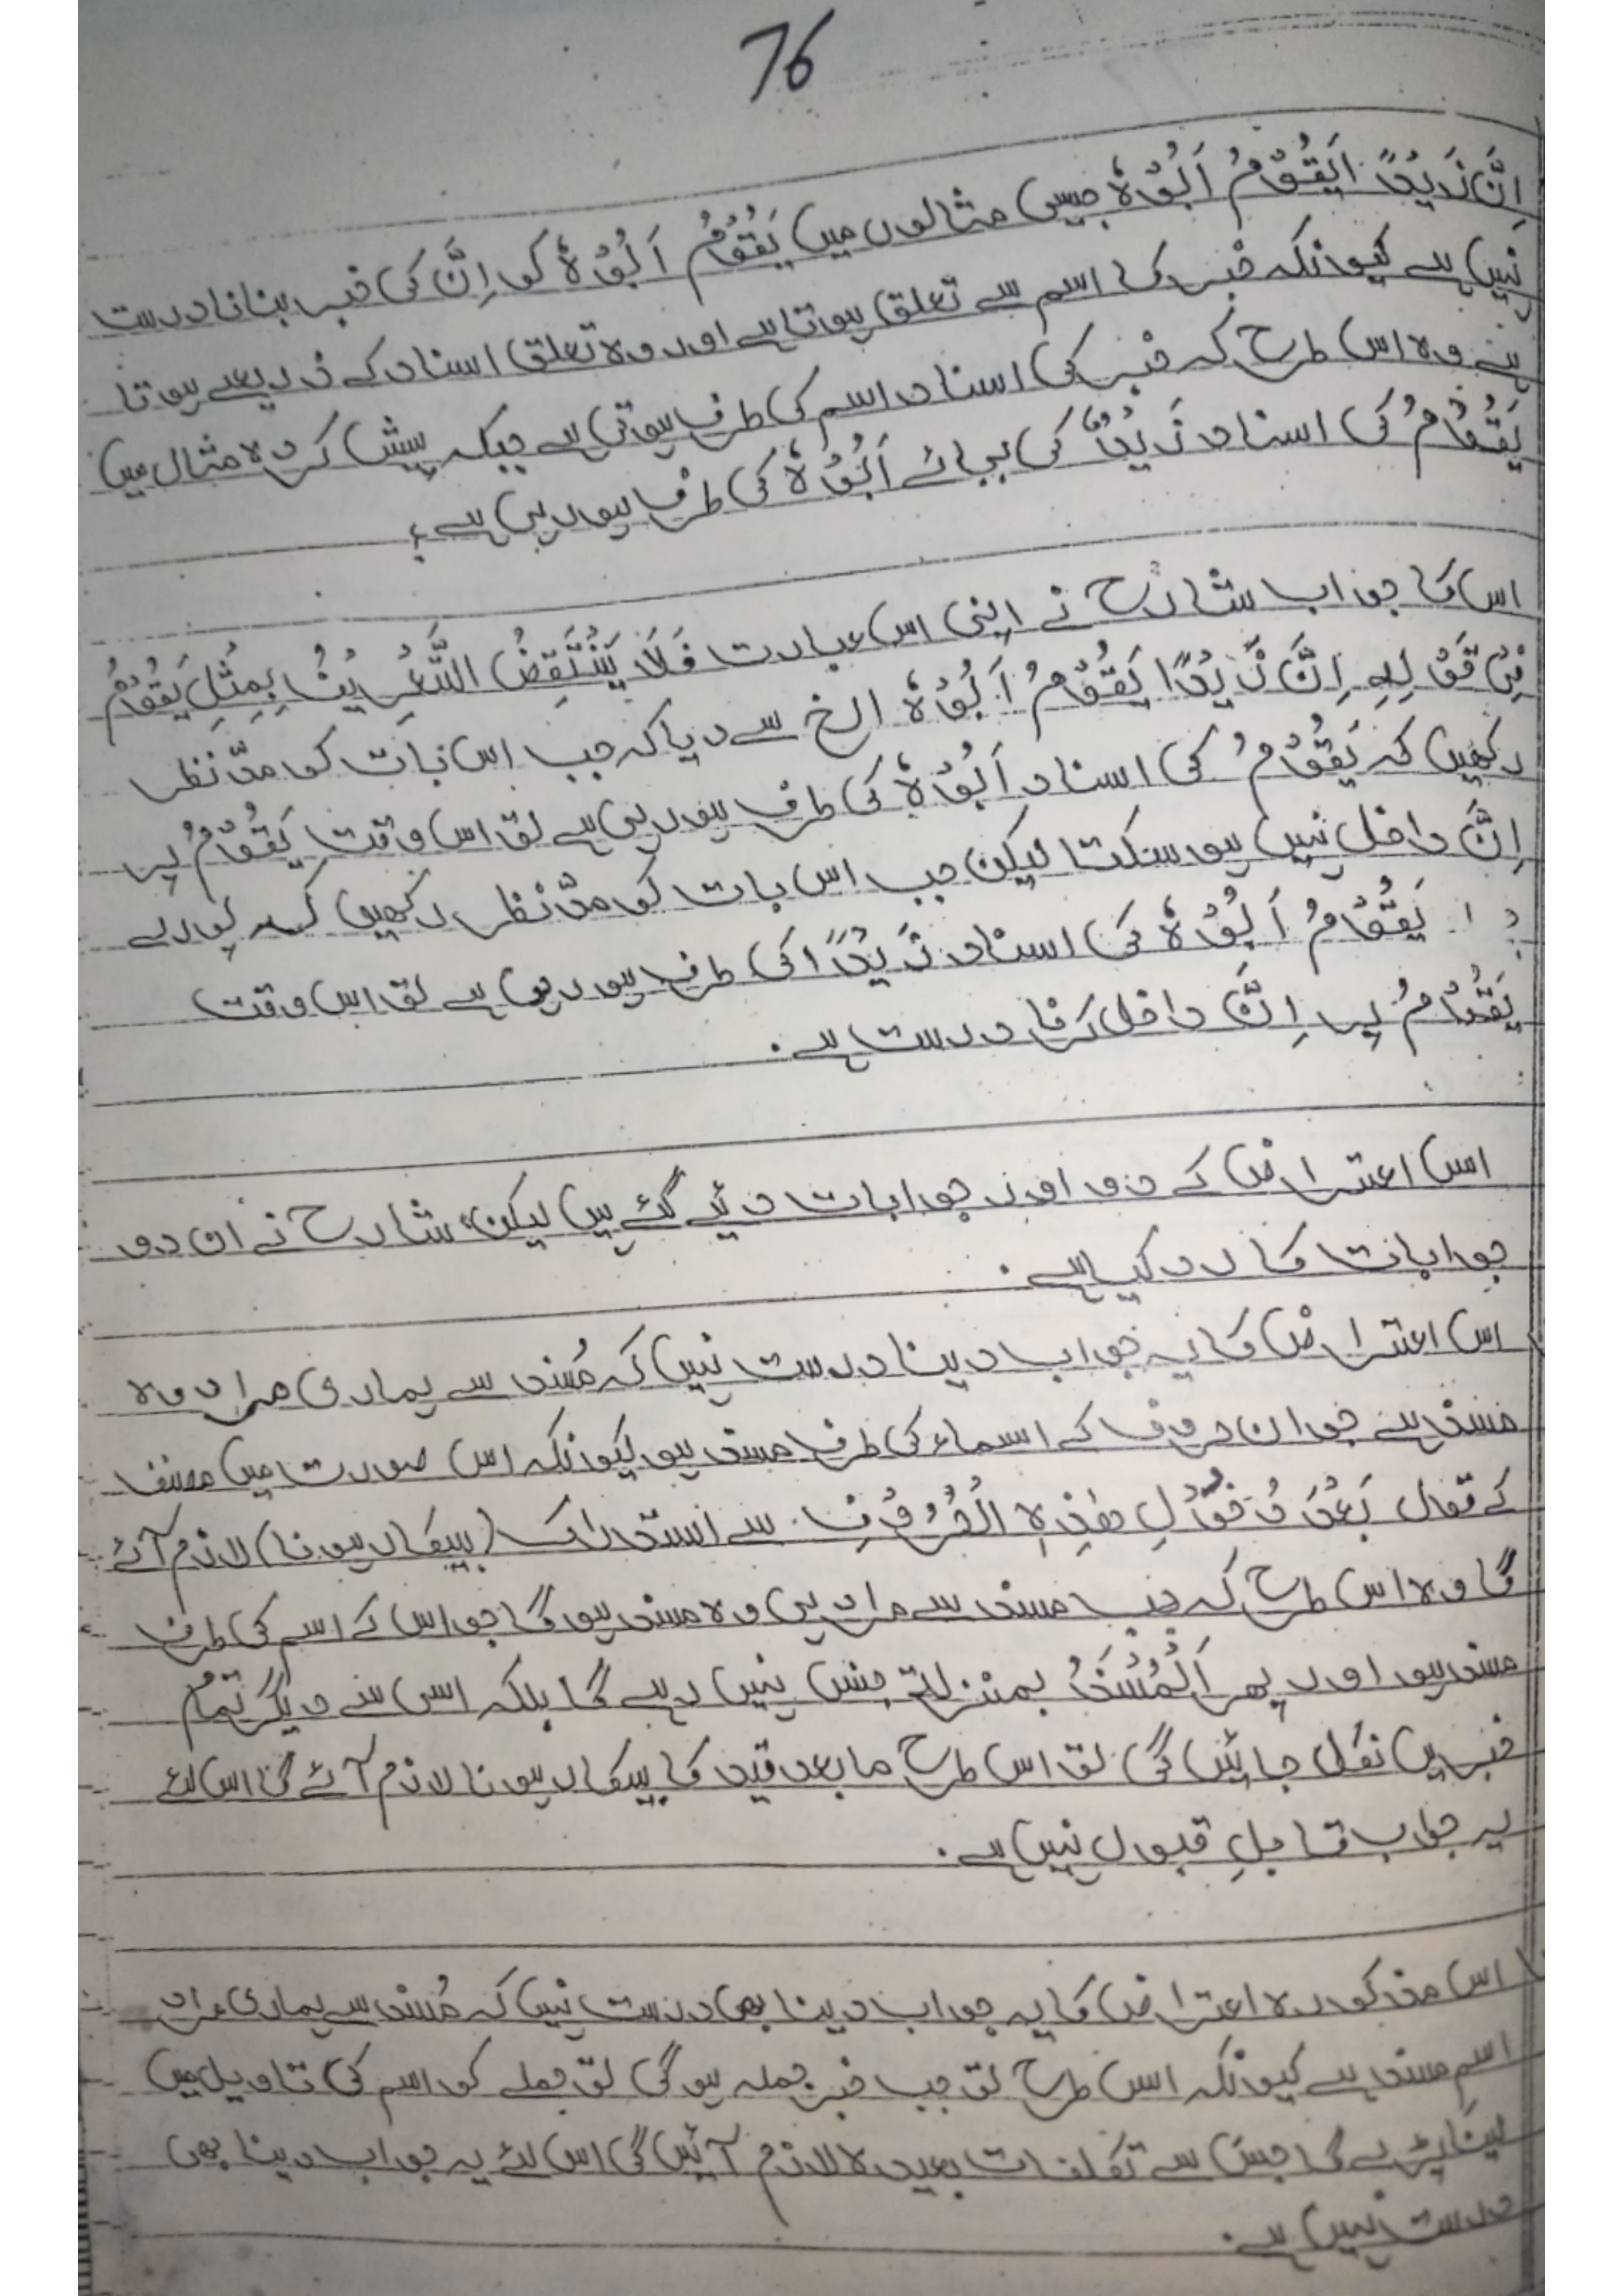 76
اِنَّ زَیْدًا یَقُوْمُ اَبُوْہُ جیسی مثالوں میں یَقُوْمُ اَبُوْہُ کو اِنَّ کی خبر بنانا درست
نہیں ہے کیونکہ خبر کا اسم سے تعلق ہوتا ہے اور وہ تعلق اسناد کے ذریعے ہوتا
ہے وہ اس طرح کہ خبر کی اسناد اسم کی طرف ہوتی ہے جبکہ پیش کردہ مثال میں
یَقُوْمُ کی اسناد زَیْدٌ کی بجائے اَبُوْہُ کی طرف ہو رہی ہے؟
اس کا جواب شارح نے اپنی اس عبارت فَلَا یَنْتَقِضُ التَّعْرِیْفُ بِمِثْلِ یَقُوْمُ
فِیْ قَوْلِہٖ اِنَّ زَیْدًا یَقُوْمُ اَبُوْہُ الخ سے دیا کہ جب اس بات کو مدّنظر
رکھیں کہ یَقُوْمُ کی اسناد اَبُوْہُ کی طرف ہو رہی ہے تو اس وقت یَقُوْمُ پر
اِنَّ داخل نہیں ہو سکتا لیکن جب اس بات کو مدّنظر رکھیں کہ پورے
یَقُوْمُ اَبُوْہُ کی اسناد زَیْدًا کی طرف ہو رہی ہے تو اس وقت
یَقُوْمُ پر اِنَّ داخل کرنا درست ہے۔
اس اعتراض کے دو اور جوابات دئیے گئے ہیں لیکن شارح نے ان دو
جوابات کا رد کیا ہے۔
اس اعتراض کا یہ جواب دینا درست نہیں کہ مُسند سے ہماری مراد وہ
مسند ہے جو ان حروف کے اسماء کی طرف مسند ہو کیونکہ اس صورت میں مصنف
کے قول بَعْدَ دُخُوْلِ ھٰذِہِ الْحُرُوْفِ سے استدراک (بیکار ہونا) لازم آئے
گا وہ اس طرح کہ جب مسند سے مراد ہی وہ مسند ہو گا جو اس کے اسم کی طرف
مسند ہو اور پھر اَلْمُسْنَدُ بمنزلۃ جنس نہیں رہے گا بلکہ اس سے دیگر تمام
خبریں نکل جائیں گی تو اس طرح مابعد قید کا بیکار ہونا لازم آئے گا اس لئے
یہ جواب قابلِ قبول نہیں ہے۔
اس مذکورہ اعتراض کا یہ جواب دینا بھی درست نہیں کہ مُسند سے ہماری مراد
اسم مسند ہے کیونکہ اس طرح تو جب خبر جملہ ہو گی تو جملے کو اسم کی تاویل میں
لینا پڑے گا جس سے تکلفات بعیدہ لازم آئیں گی اس لئے یہ جواب دینا بھی
درست نہیں ہے۔